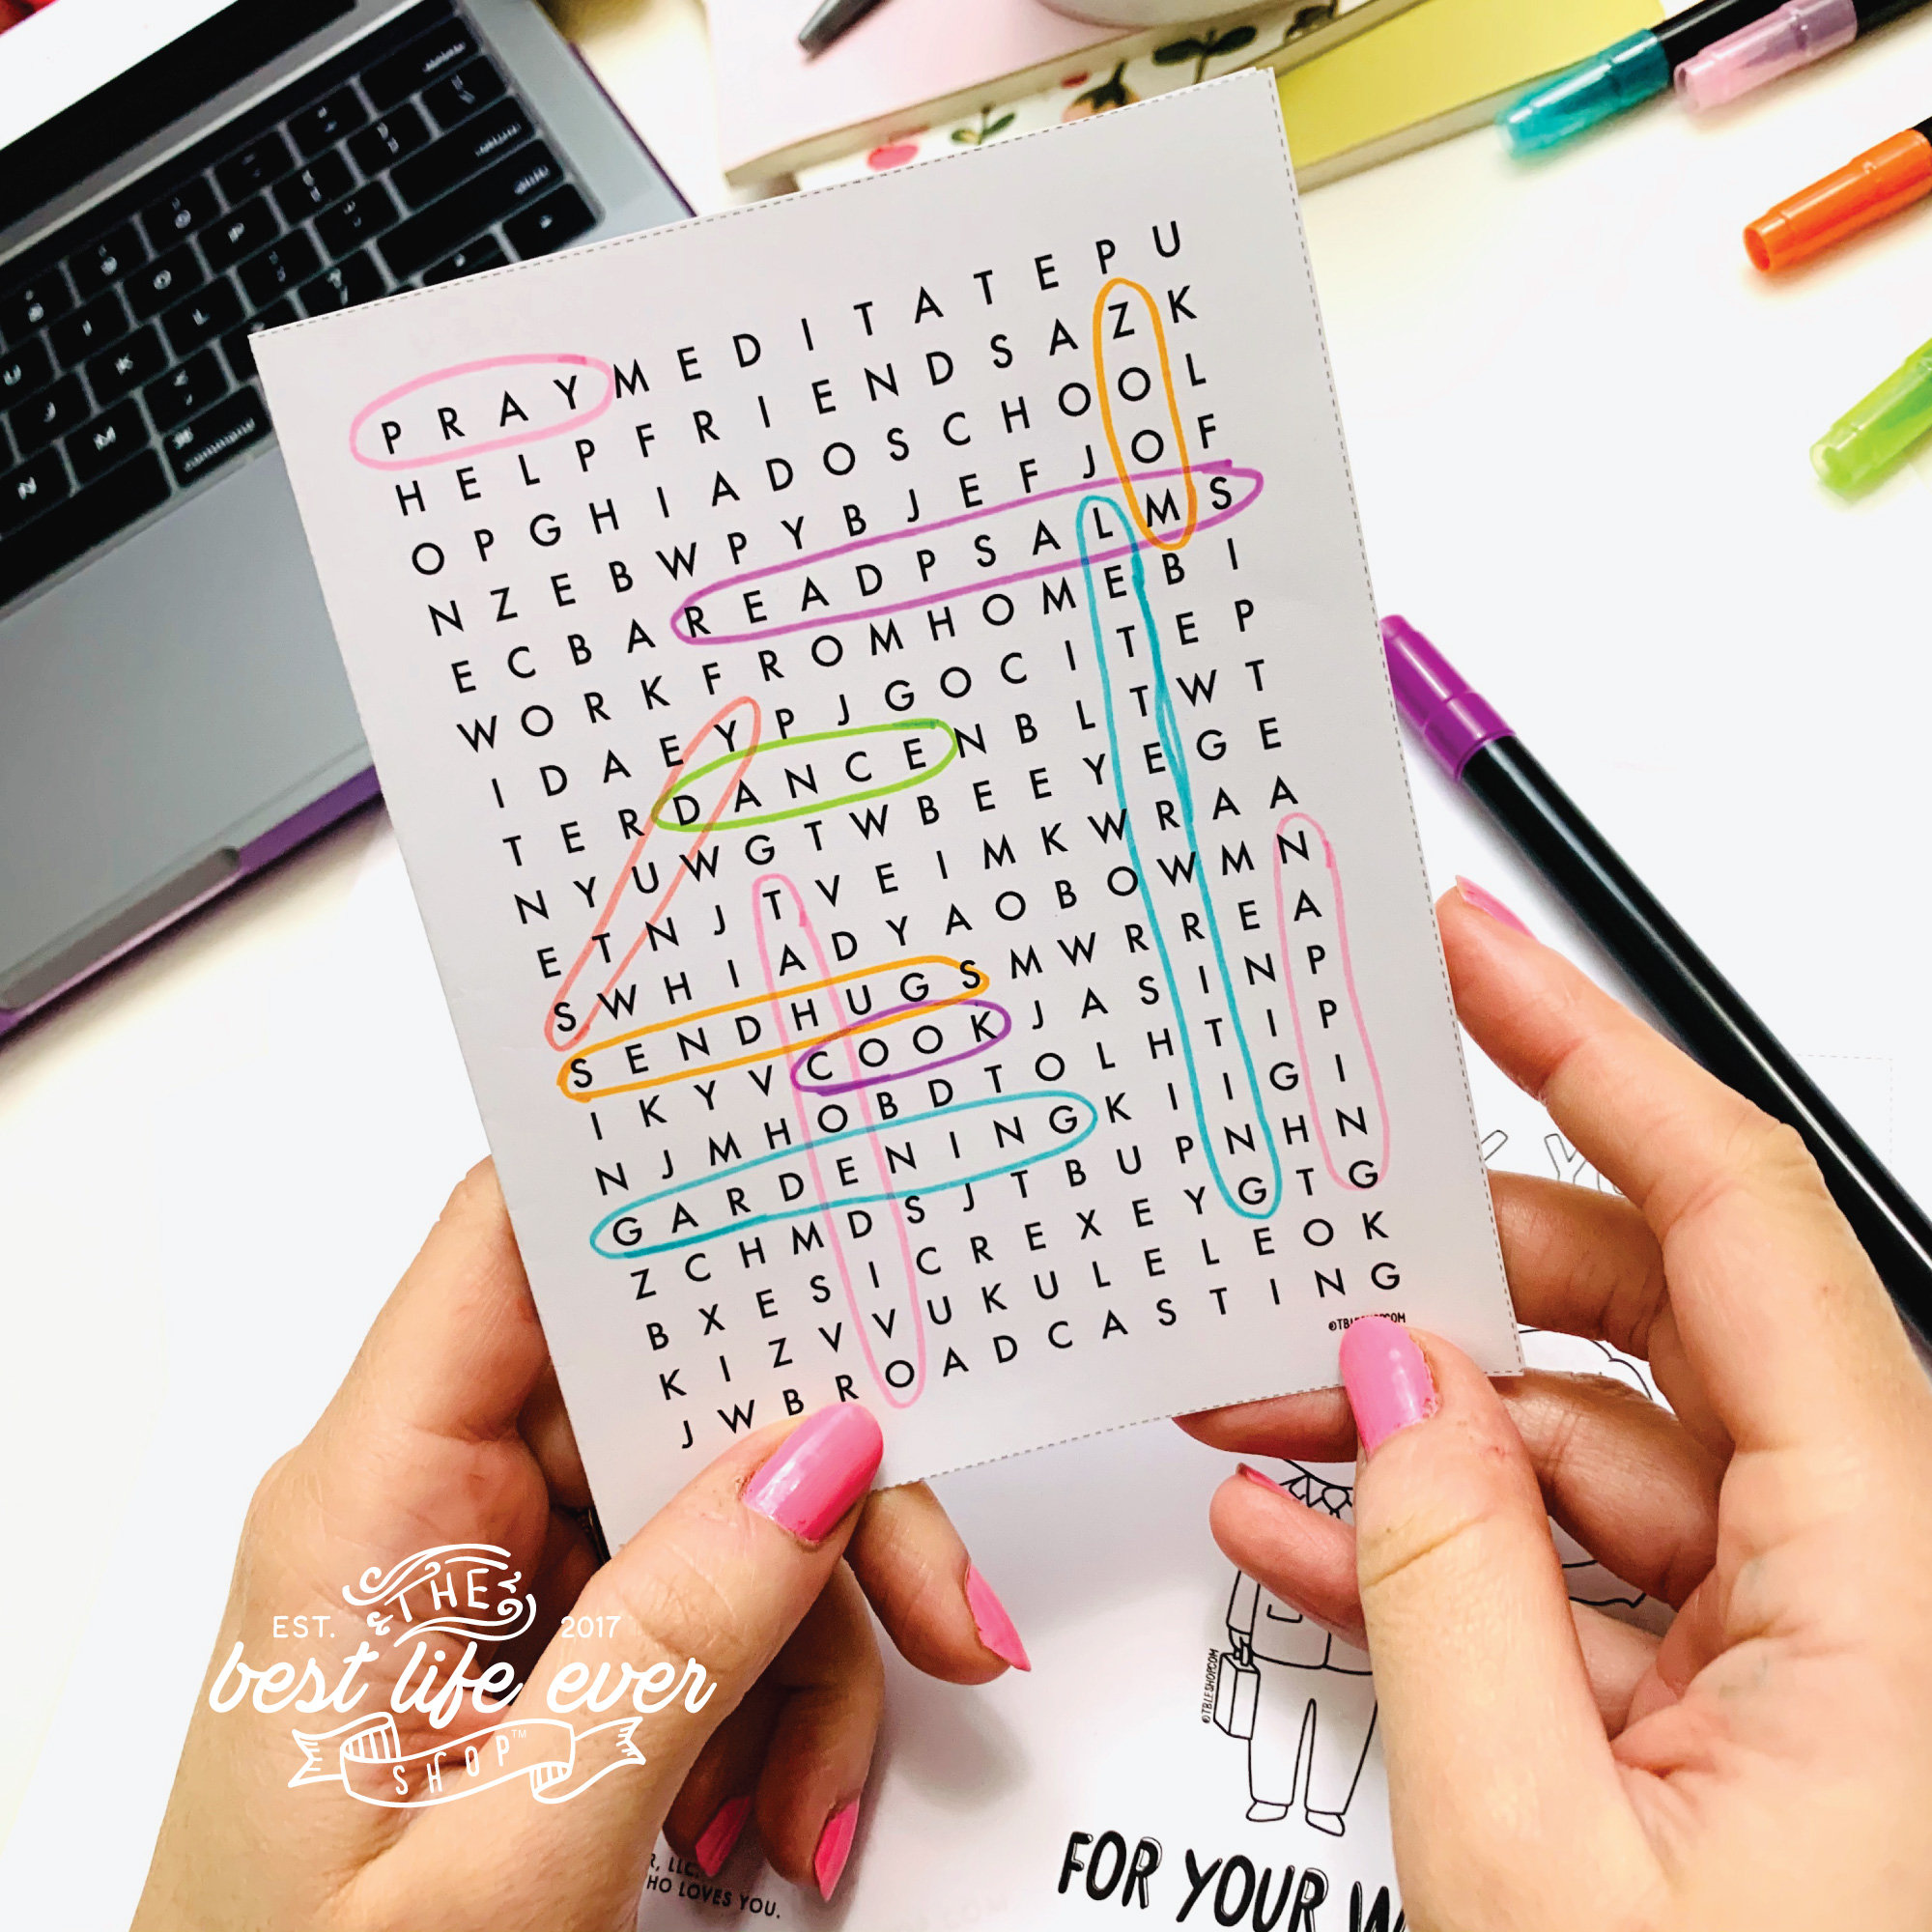 P R A Y M E D I T A T E P U
H E L P F R I E N D S A Z K
O P G H I A D O S C H O O L
N Z E B W P Y B J E F J O F
E C B A R E A D P S A L M S
W O R K F R O M H O M E B I
I D A E Y P J G O C I T E P
T E R D A N C E N B L T W T
N Y U W G T W B E E Y E G E
E T N J T V E I M K W R A A
S W H I A D Y A O B O W M N
S E N D H U G S M W R R E A
I K Y V C O O K J A S I N P
N J M H O B D T O L H T I P
G A R D E N I N G K I I G I
Z C H M D S J T B U P N H N
B X E S I C R E X E Y G T G
K I Z V V U K U L E L E O K
J W B R O A D C A S T I N G
THE
EST. 2017
best life ever
SHOP™
©TBLESHOP.COM
FOR YOUR
LLC
HO LOVES YOU.
command